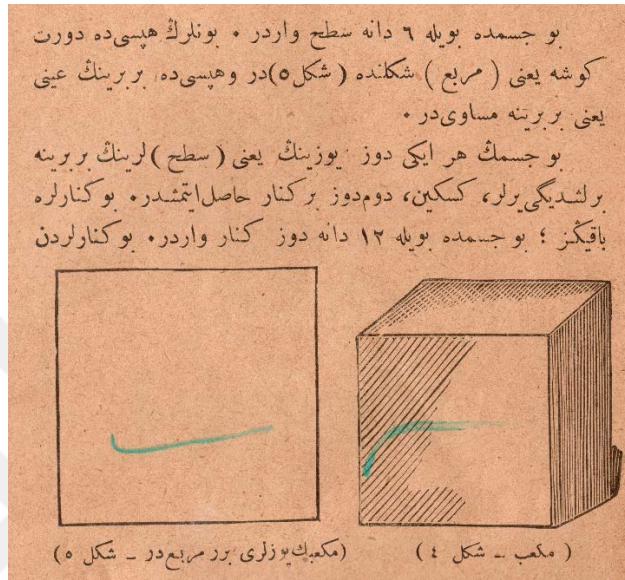 بو جسمده بویله ٦ دانه سطح واردر . بونلرڭ هپسی‌ده دورت
کوشه یعنی ( مربع ) شکلنده ( شکل ٥ )در وهپسی‌ده بربرینڭ عینی
یعنی بربرینه مساوی‌در .
بو جسمڭ هر ایکی دوز یوزینڭ یعنی ( سطح ) لرینڭ بربرینه
برلشدیگی یرلر، کسکین، دوم‌دوز برکنار حاصل‌ایتمشدر. بوکنارلره
باقیڭز ؛ بو جسمده بویله ١٢ دانه دوز کنار واردر. بوکنارلردن
( مکعب ـ شکل ٤ )
(مکعبك یوزلری برر مربع‌در ـ شکل ٥)